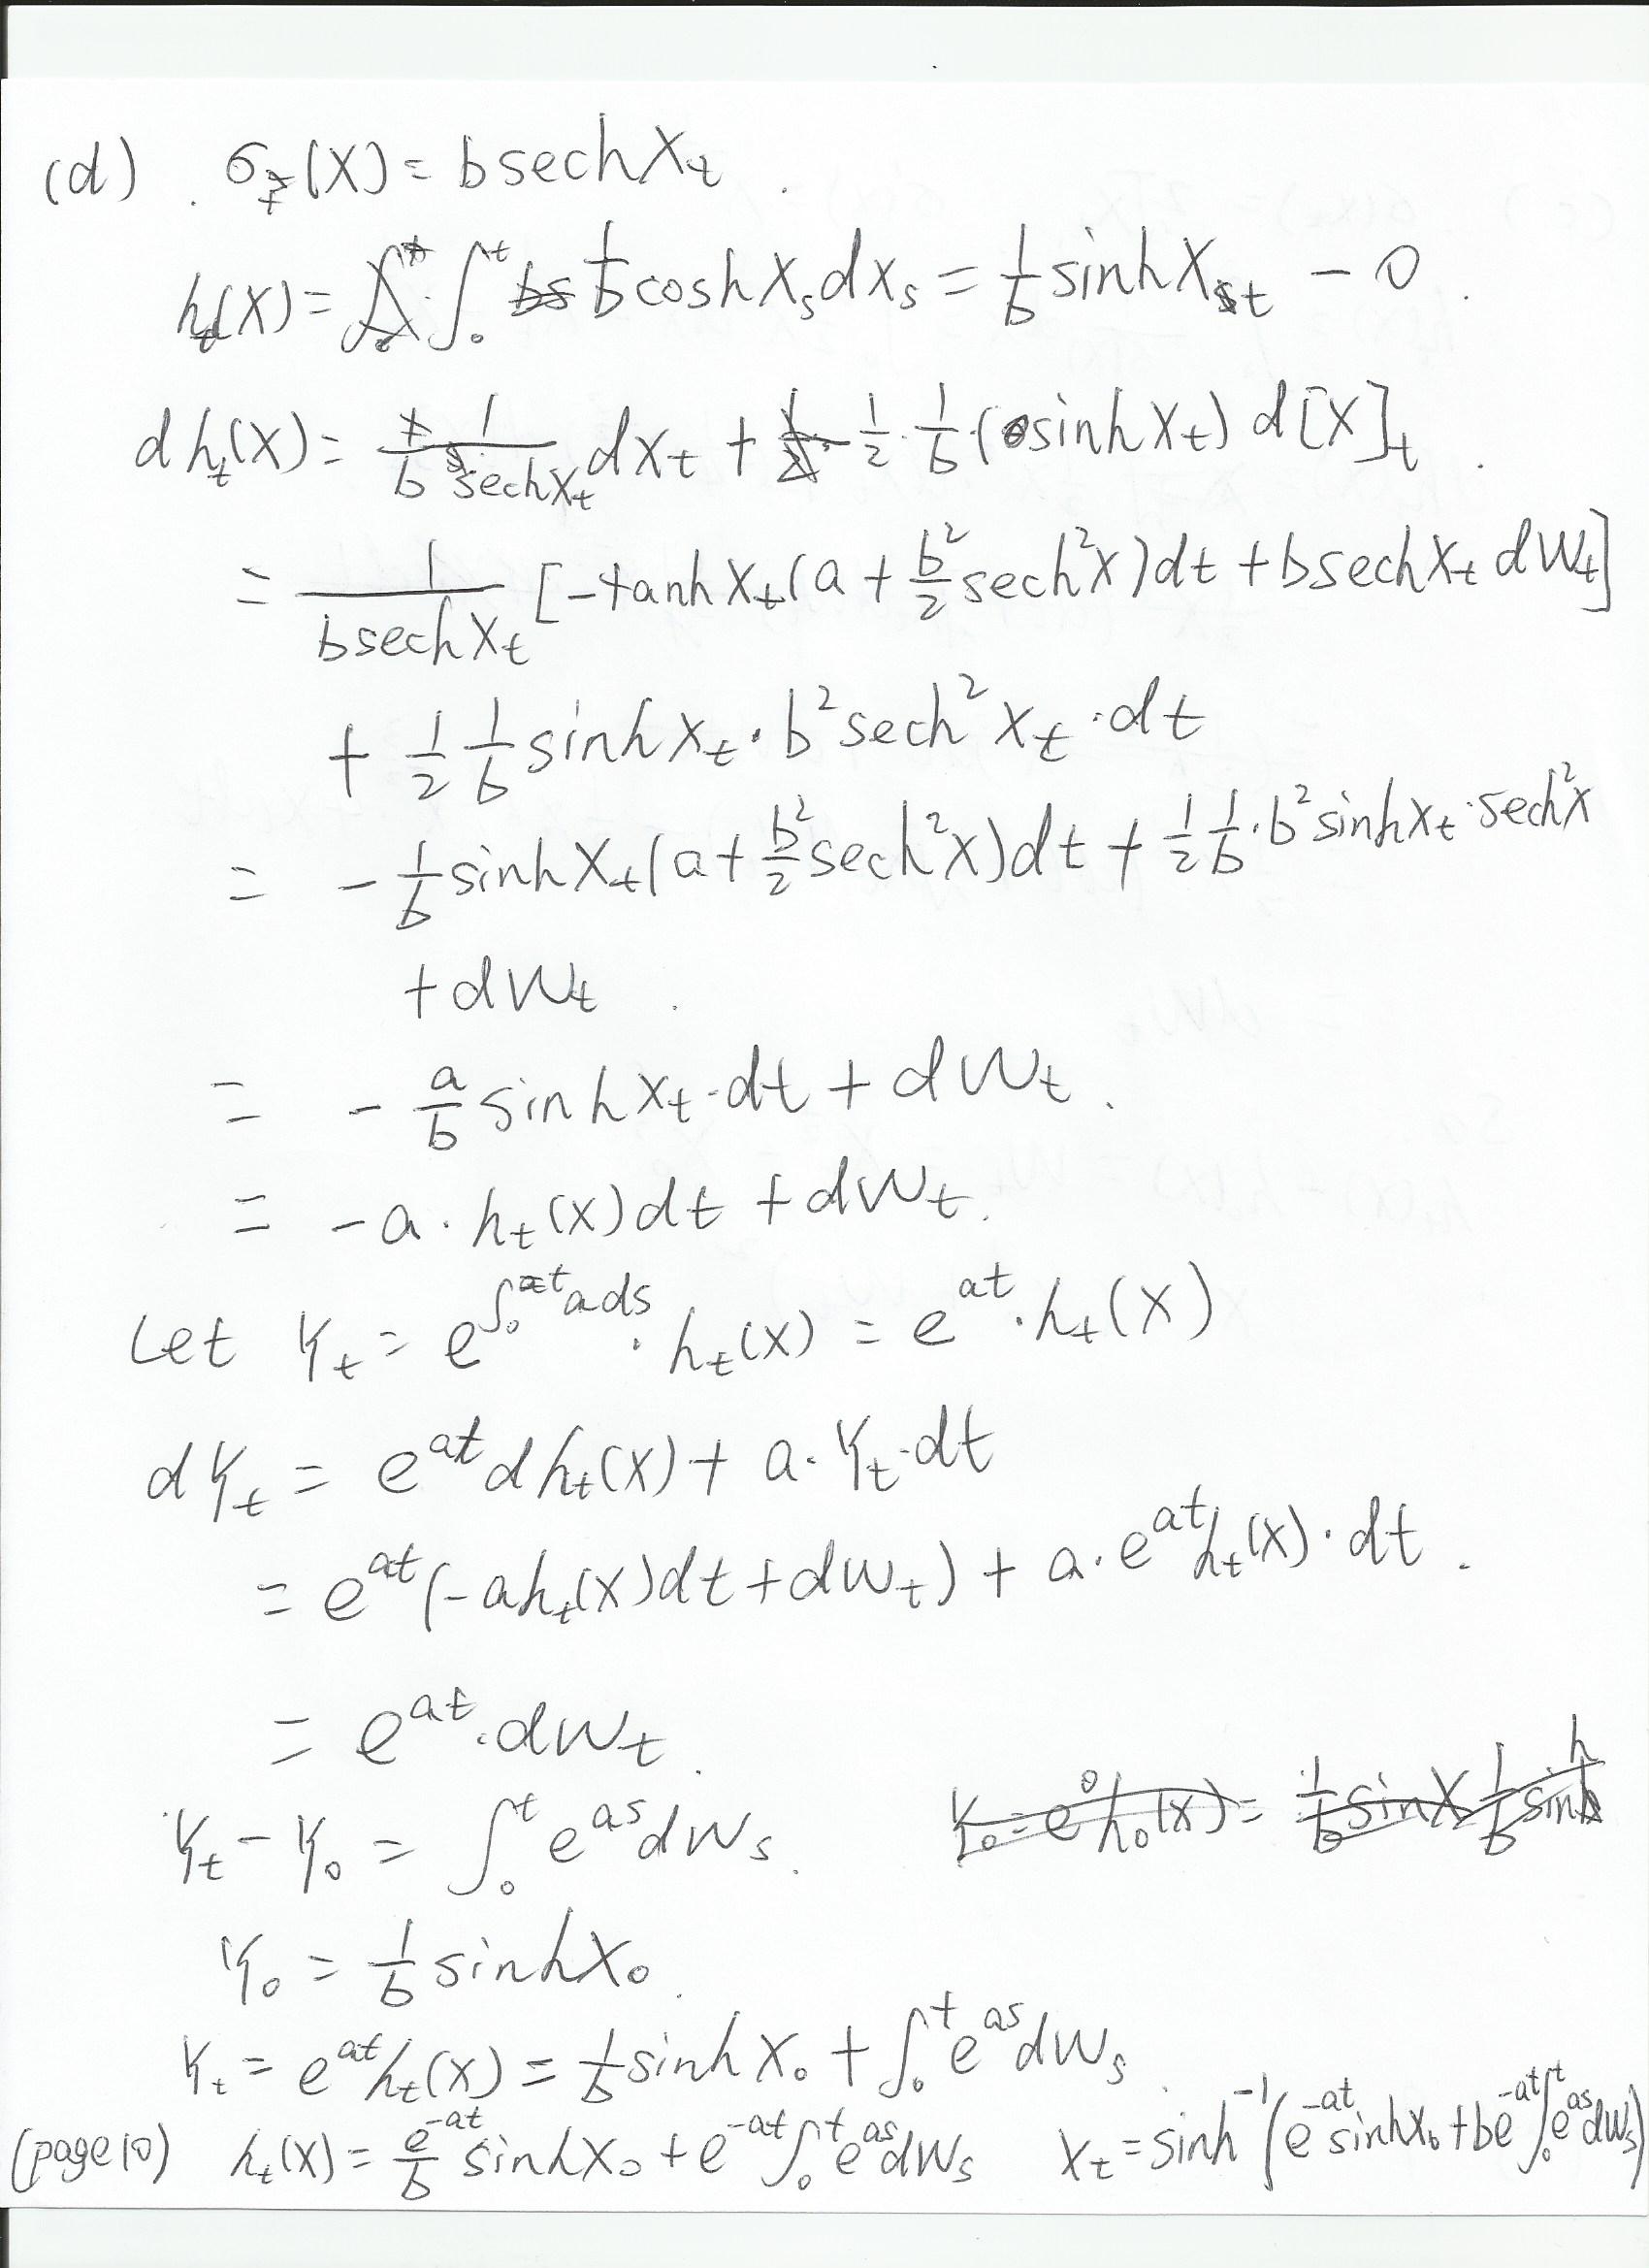 (d) . σ_t(X) = b sech X_t .
h_t(X) = ∫_0^t 1/b cosh X_s dX_s = 1/b sinh X_t − 0 .
dh_t(X) = 1/(b sech X_t) dX_t + 1/2 · 1/b · (sinh X_t) d[X]_t .
= 1/(b sech X_t) [−tanh X_t (a + b²/2 sech² X) dt + b sech X_t dW_t]
+ 1/2 1/b sinh X_t · b² sech² X_t · dt
= − 1/b sinh X_t (a + b²/2 sech² X) dt + 1/2 1/b · b² sinh X_t · sech² X
+ dW_t .
= − a/b sinh X_t · dt + dW_t .
= −a · h_t(X) dt + dW_t .
Let Y_t = e^{∫_0^t a ds} · h_t(X) = e^{at} · h_t(X)
dY_t = e^{at} dh_t(X) + a · Y_t · dt
= e^{at} (−a h_t(X) dt + dW_t) + a · e^{at} h_t(X) · dt .
= e^{at} · dW_t .
Y_t − Y_0 = ∫_0^t e^{as} dW_s . Y_0 = e^0 h_0(X) = 1/b sin X 1/b sinh
Y_0 = 1/b sinh X_0 .
Y_t = e^{at} h_t(X) = 1/b sinh X_0 + ∫_0^t e^{as} dW_s .
(page 10) h_t(X) = e^{−at}/b sinh X_0 + e^{−at} ∫_0^t e^{as} dW_s X_t = sinh^{−1} (e^{−at} sinh X_0 + b e^{−at} ∫_0^t e^{as} dW_s)